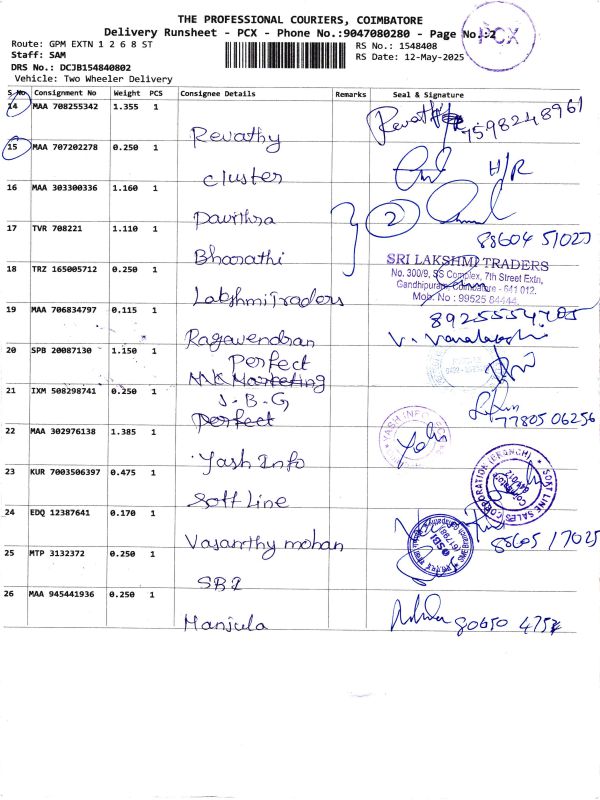 THE PROFESSIONAL COURIERS, COIMBATORE
Delivery Runsheet - PCX - Phone No.:9047080280 - Page No.:2
PCX
Route: GPM EXTN 1 2 6 8 ST
RS No.: 1548408
Staff: SAM
RS Date: 12-May-2025
DRS No.: DCJB154840802
Vehicle: Two Wheeler Delivery
S No Consignment No Weight PCS Consignee Details Remarks Seal & Signature
14 MAA 708255342 1.355 1 Revathy 7598248961
15 MAA 707202278 0.250 1 cluster H/R
16 MAA 303300336 1.160 1 Pavithra 2
17 TVR 708221 1.110 1 Bharathi 88604 51025
18 TRZ 165005712 0.250 1 Lakshmi Traders
SRI LAKSHMI TRADERS
No. 300/9, SS Complex, 7th Street Extn,
Gandhipuram, Coimbatore - 641 012.
Mob. No : 99525 84444
19 MAA 706834797 0.115 1 Ragavendran
20 SPB 20087130 1.150 1 Perfect
MK Marketing
21 IXM 508298741 0.250 1 J.B.G
perfect
77805 06256
22 MAA 302976138 1.385 1 Yash Info
23 KUR 7003506397 0.475 1 Soft Line
SOFT LINE SALES CORPORATION (BRANCH)
24 EDQ 12387641 0.170 1 Vasanthy mohan
25 MTP 3132372 0.250 1 SBI
26 MAA 945441936 0.250 1 Manjula